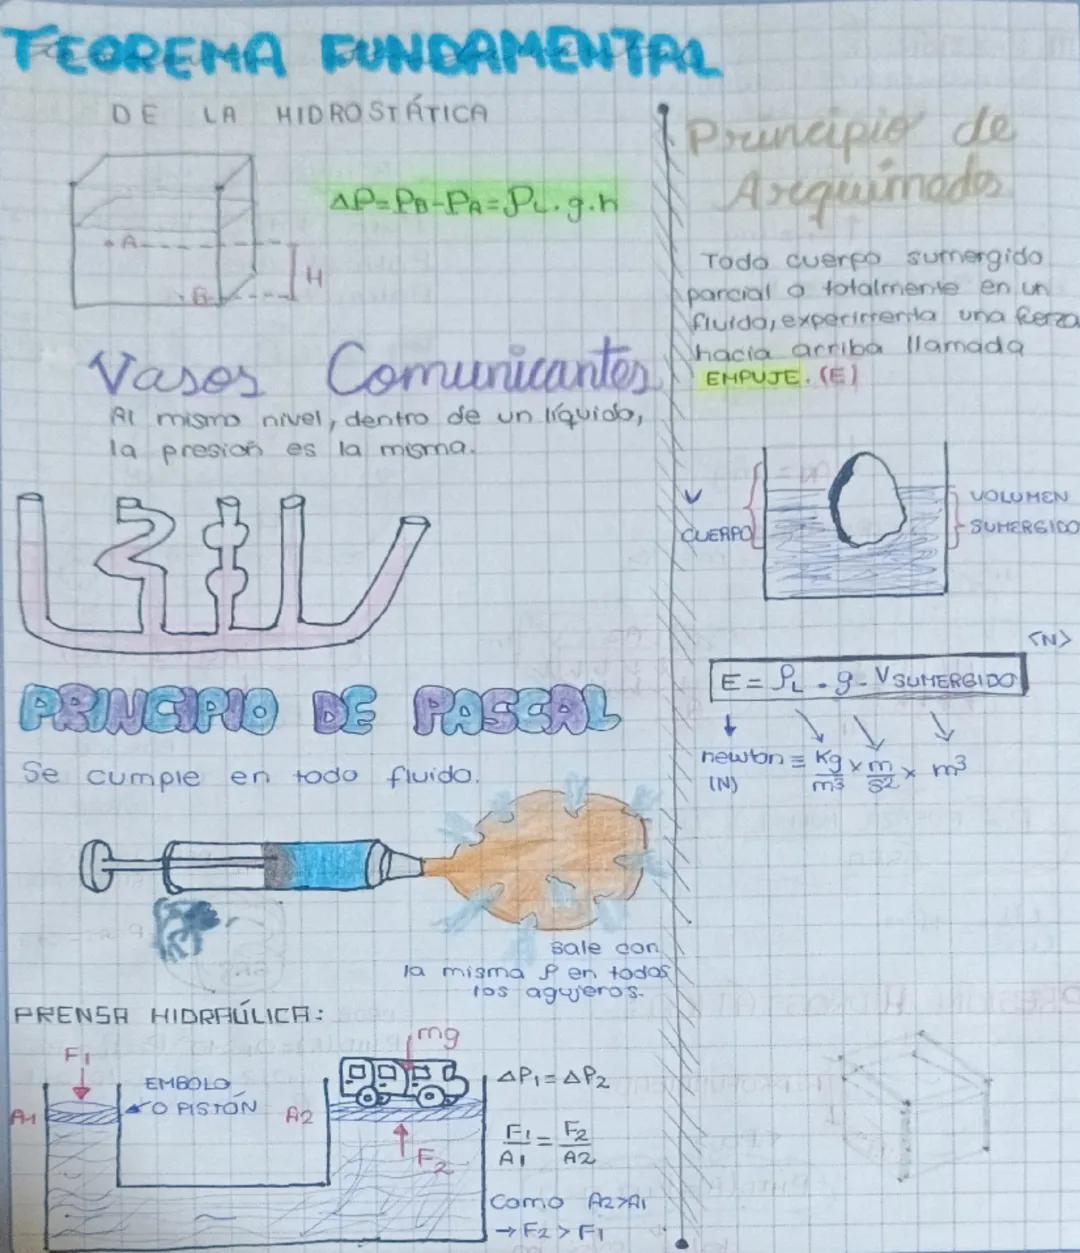 TEOREMA FUNDAMENTAL
DE LA HIDROSTÁTICA
A
B
H
ΔP=PB-PA=ρL.g.h
Vasos Comunicantes
Al mismo nivel, dentro de un líquido,
la presion es la misma.
PRINCIPIO DE PASCAL
Se cumple en todo fluido.
sale con
la misma P en todos
los agujeros.
PRENSA HIDRAÚLICA:
F1
A1
EMBOLO
O PISTÓN
A2
mg
F2
ΔP1=ΔP2
F1/A1 = F2/A2
Como A2>A1
→ F2 > F1
Principio de
Arquímades
Todo cuerpo sumergido
parcial o totalmente en un
fluido, experimenta una fuerza
hacia arriba llamada
EMPUJE. (E)
V
CUERPO
VOLUMEN
SUMERGIDO
<N>
E = ρL . g . V SUMERGIDO
newton = Kg/m3 x m/s2 x m3
(N)